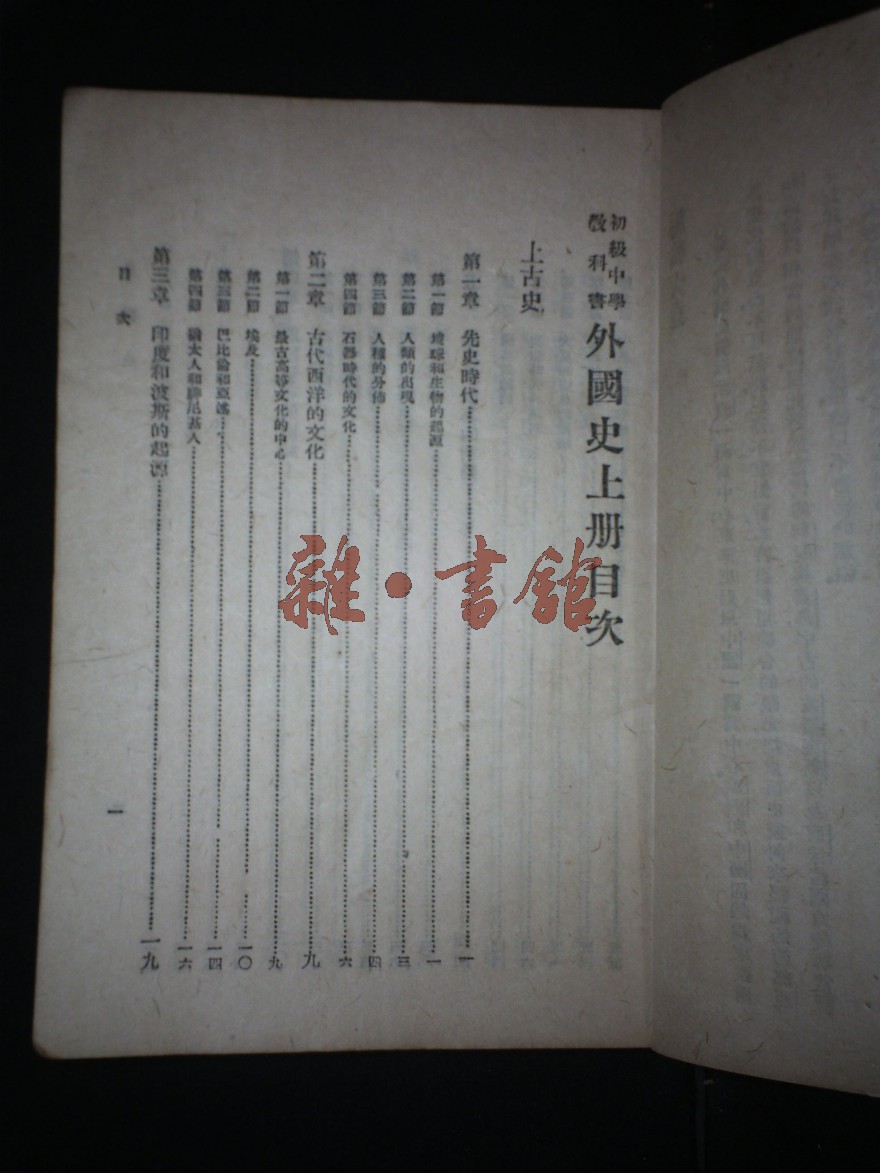 初級中學
教科書
外國史上册目次
上古史
第一章 先史時代 一
第一節 地球和生物的起源 一
第二節 人類的出現 三
第三節 人種的分佈 四
第四節 石器時代的文化 六
第二章 古代西洋的文化 九
第一節 最古高等文化的中心 九
第二節 埃及 一〇
第三節 巴比倫和亞述 一四
第四節 猶太人和腓尼基人 一六
第三章 印度和波斯的起源 一九
目次
一
雜·書館